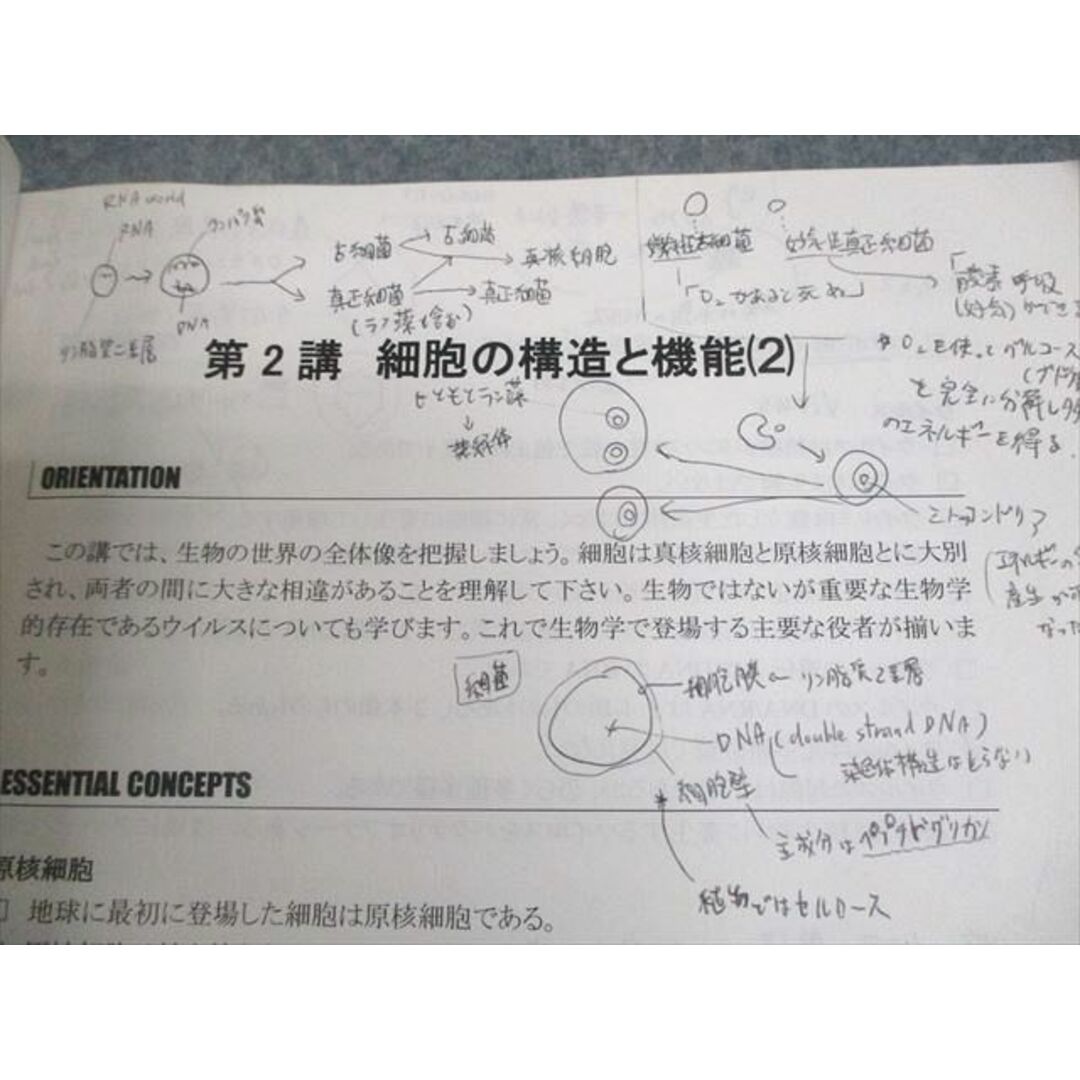 RNA world
RNA
タンパク質
DNA
リン脂質二重層
古細菌
古細菌
真核細胞
真正細菌
真正細菌
(ラン藻も含む)
嫌気性古細菌
好気性真正細菌
「O₂があると死ぬ」
酸素呼吸
(好気)ができる
第2講 細胞の構造と機能(2)
* O₂を使ってグルコース
(ブドウ
を完全に分解し多
のエネルギーを得る
もともとラン藻
葉緑体
ORIENTATION
ミトコンドリア
エネルギーの
産生が
なった
この講では、生物の世界の全体像を把握しましょう。細胞は真核細胞と原核細胞とに大別
され、両者の間に大きな相違があることを理解して下さい。生物ではないが重要な生物学
的存在であるウイルスについても学びます。これで生物学で登場する主要な役者が揃いま
す。
細菌
細胞膜 〜 リン脂質2重層
DNA (double strand DNA)
染色体構造はとらない
ESSENTIAL CONCEPTS
* 細胞壁
主成分はペプチドグリカン
植物ではセルロース
原核細胞
地球に最初に登場した細胞は原核細胞である。